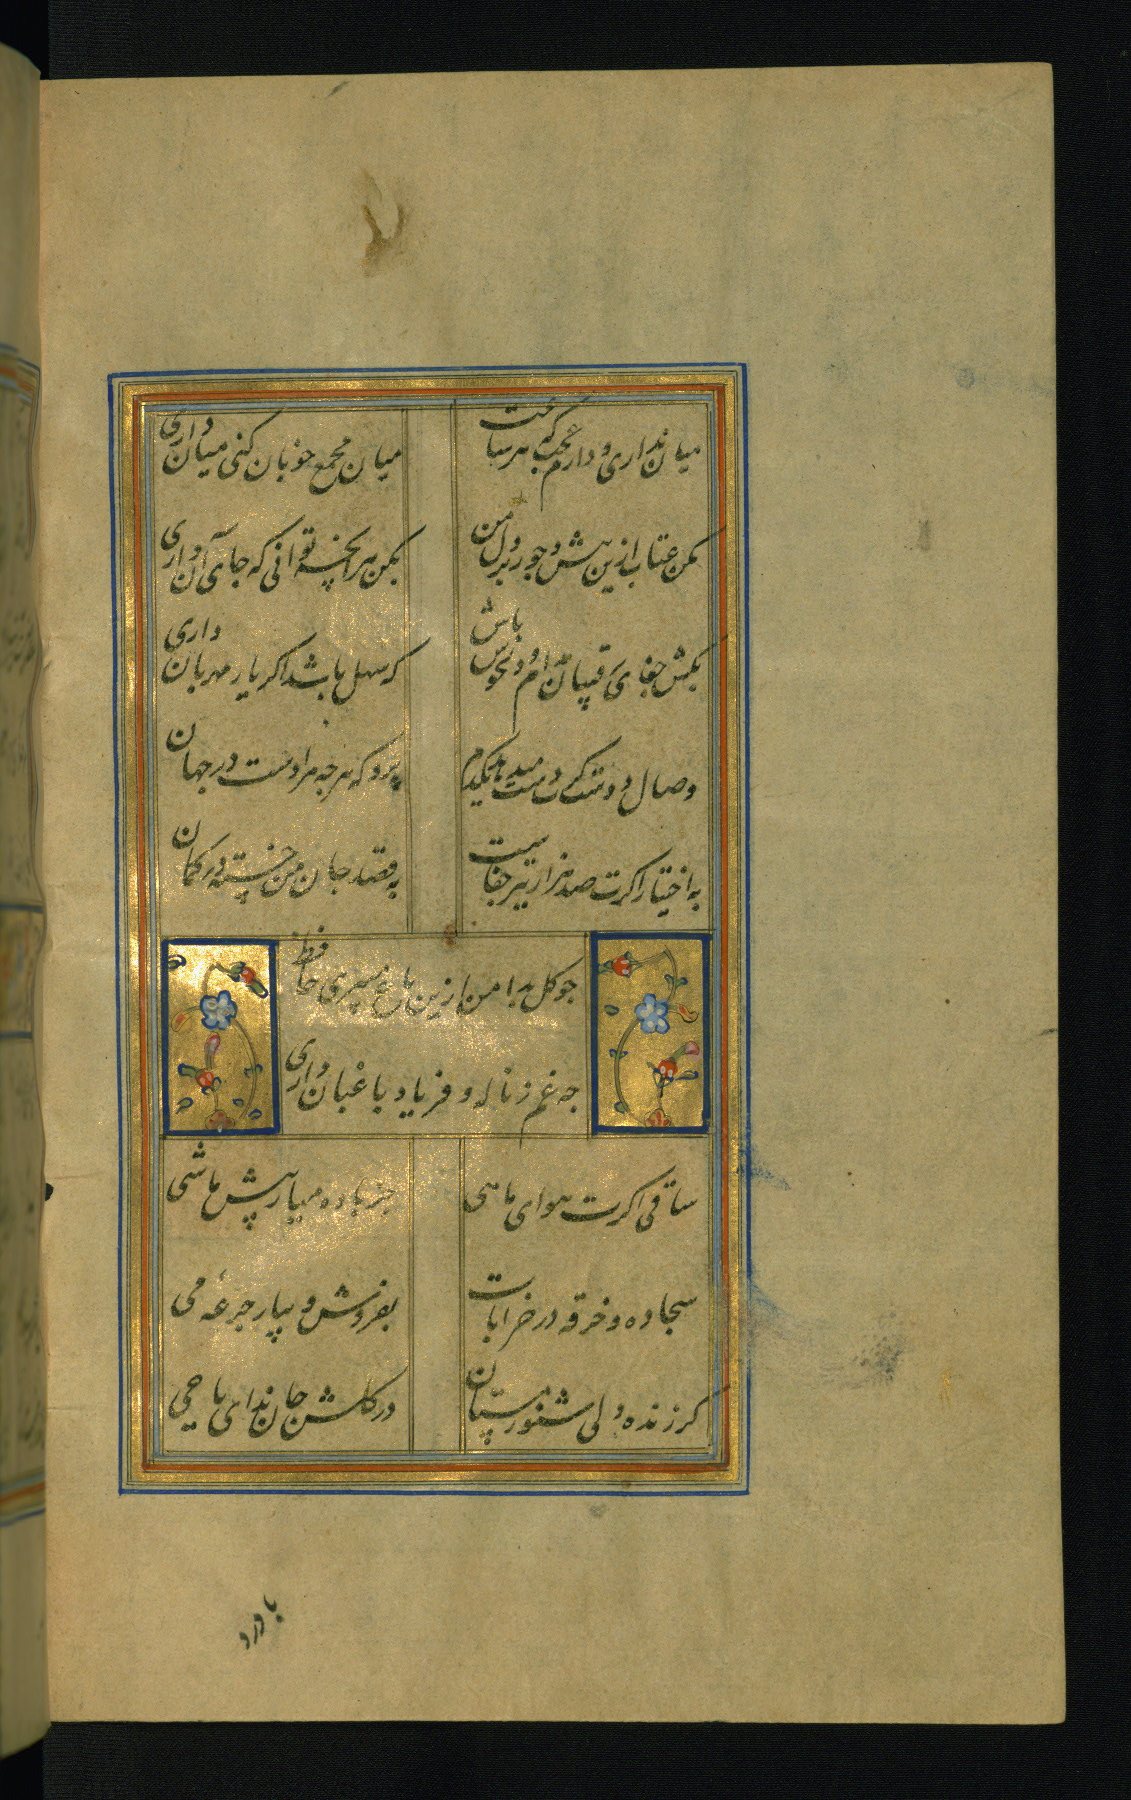 میان نداری و دارم عجب که هر ساعت
میان مجمع خوبان کنی میان داری
مکن عتاب ازین بیش و جور بر دل من
بکن هر آنچه توانی که جای آن داری
بکش جفای رقیبان مدام و دلخوش باش
که سهل باشد اگر یار مهربان داری
وصال دوست گرت دست میدهد یکدم
برو که هرچه مرادست در جهان
به اختیار اگرت صد هزار تیر جفاست
به قصد جان من خسته در کمان
چو گل بدامن ازین باغ میبری حافظ
چه غم ز ناله و فریاد باغبان داری
ساقی اگرت هوای ما هی
جز باده میار پیش ما شی
سجاده و خرقه در خرابات
بفروش و بیار جرعهٔ می
گر زنده دلی شنو ز مستان
در گلشن جان ندای یا حی
با درد